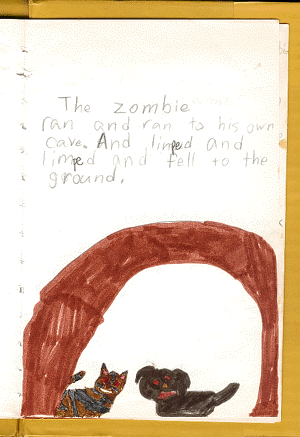 The zombie
ran and ran to his own
cave. And limped and
limped and fell to the
ground.